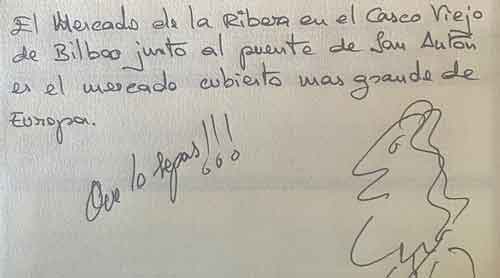 El Mercado de la Ribera en el Casco Viejo
de Bilbao junto al puente de San Antón
es el mercado cubierto mas grande de
Europa.
Que lo sepas!!!